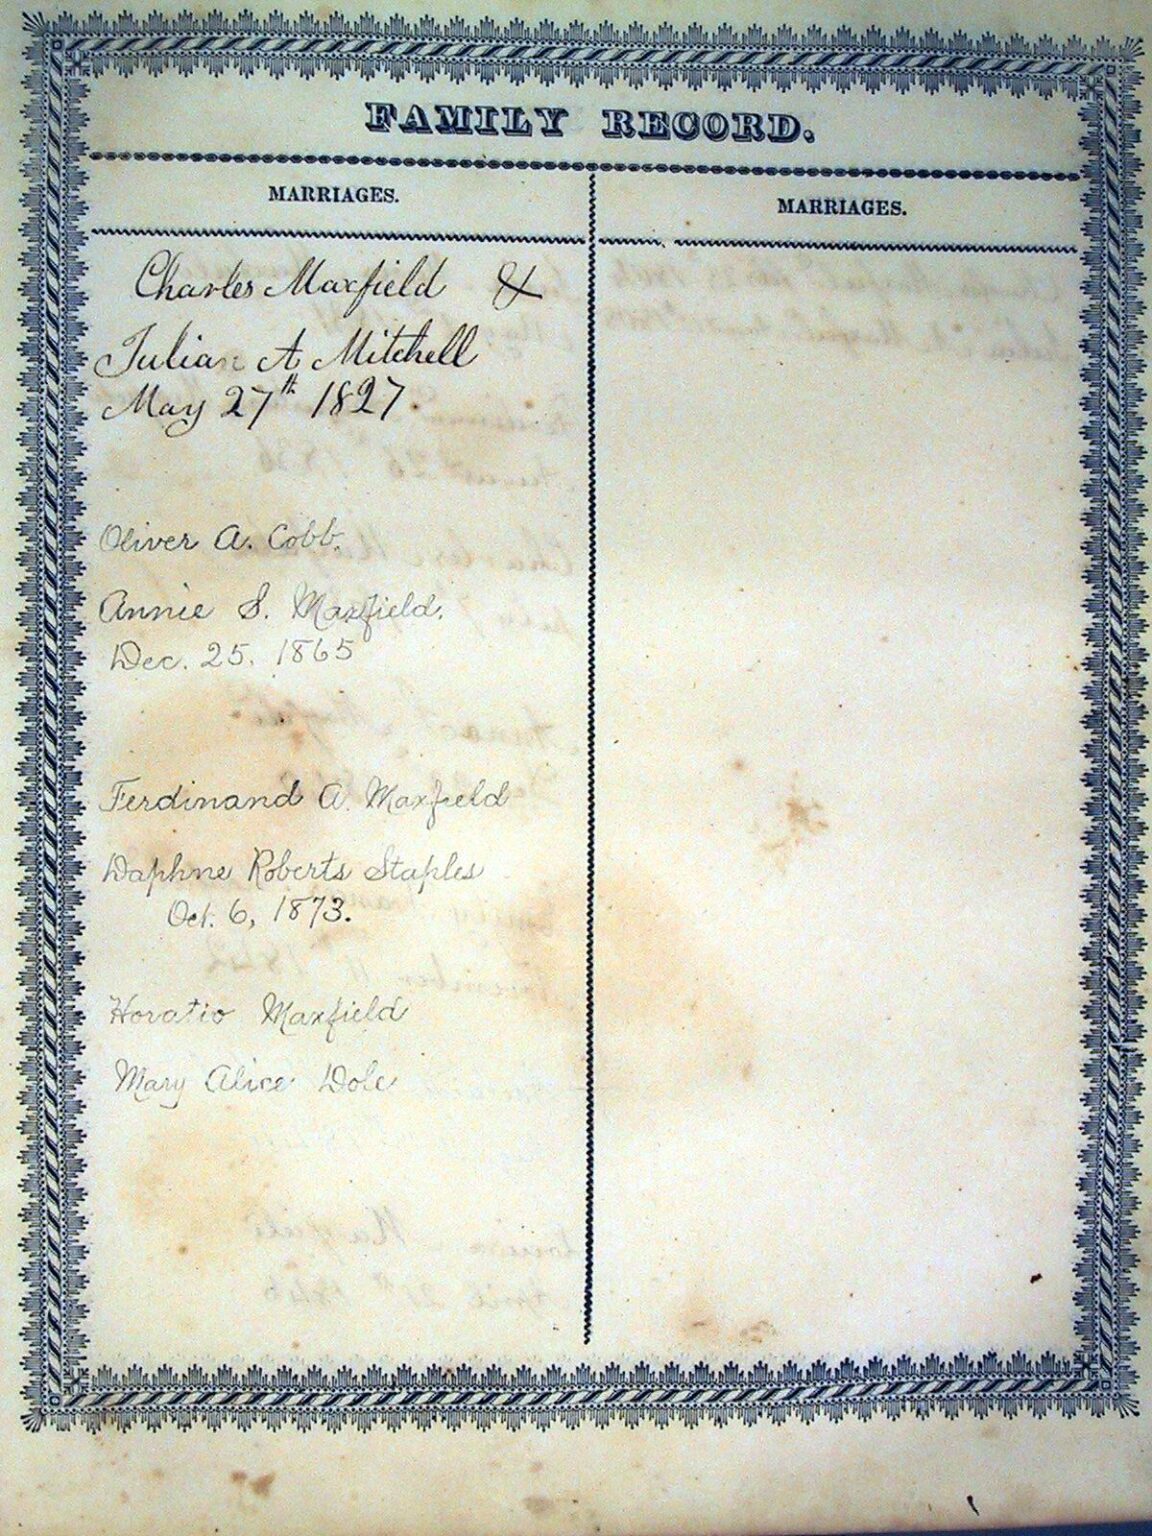 FAMILY RECORD.
MARRIAGES.
Charles Maxfield &
Julian A Mitchell
May 27th 1827.
Oliver A. Cobb.
Annie S. Maxfield.
Dec. 25. 1865
Ferdinand A. Maxfield
Daphne Roberts Staples
Oct. 6, 1873.
Horatio Maxfield
Mary Alice Dole
MARRIAGES.